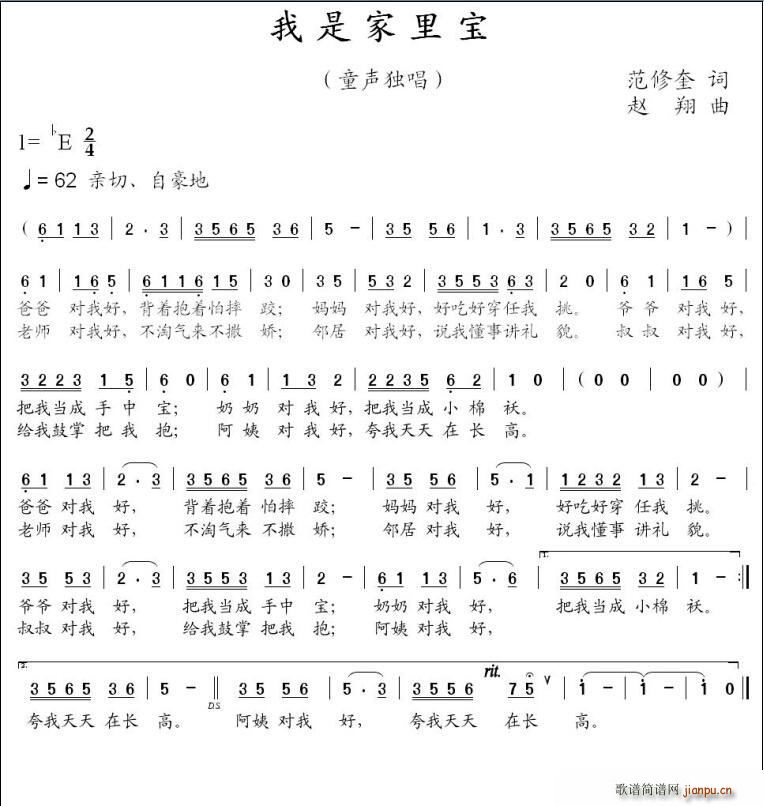 我是家里宝
（童声独唱）
范修奎 词
赵 翔 曲
1= ♭E 2/4
♩= 62 亲切、自豪地
( 6 1 1 3 | 2 . 3 | 3 5 6 5 3 6 | 5 – | 3 5 5 6 | 1 . 3 | 3 5 6 5 3 2 | 1 – ) |
6 1 | 1 6 5 | 6 1 1 6 1 5 | 3 0 | 3 5 | 5 3 2 | 3 5 5 3 6 3 | 2 0 | 6 1 | 1 6 5 |
爸爸 对我好，背着抱着怕摔 跤； 妈妈 对我好，好吃好穿任我 挑。 爷爷 对我好，
老师 对我好，不淘气来不撒 娇； 邻居 对我好，说我懂事讲礼 貌。 叔叔 对我好，
3 2 2 3 1 5 | 6 0 | 6 1 | 1 3 2 | 2 2 3 5 6 2 | 1 0 | ( 0 0 | 0 0 ) |
把我当成 手中 宝； 奶奶 对我好，把我当成 小棉 袄。
给我鼓掌 把我 抱； 阿姨 对我好，夸我天天 在长 高。
6 1 1 3 | 2 . 3 | 3 5 6 5 3 6 | 5 – | 3 5 5 6 | 5 . 1 | 1 2 3 2 1 3 | 2 – |
爸爸 对我 好， 背着抱着 怕摔 跤； 妈妈 对我 好， 好吃好穿 任我 挑。
老师 对我 好， 不淘气来 不撒 娇； 邻居 对我 好， 说我懂事 讲礼 貌。
1.
3 5 5 3 | 2 . 3 | 3 5 5 3 5 1 | 2 – | 6 1 1 3 | 5 . 6 | 3 5 6 5 3 2 | 1 – :||
爷爷 对我 好， 把我当成 手中 宝； 奶奶 对我 好， 把我当成 小棉 袄。
叔叔 对我 好， 给我鼓掌 把我 抱； 阿姨 对我 好，
2.
rit.
3 5 6 5 3 6 | 5 – || 3 5 5 6 | 5 . 3 | 3 5 5 6 7 5 ∨ | 1 – | 1 – | 1 0 ||
D.S.
夸我天天 在长 高。 阿姨 对我 好， 夸我天天 在长 高。
歌谱简谱网 jianpu.cn